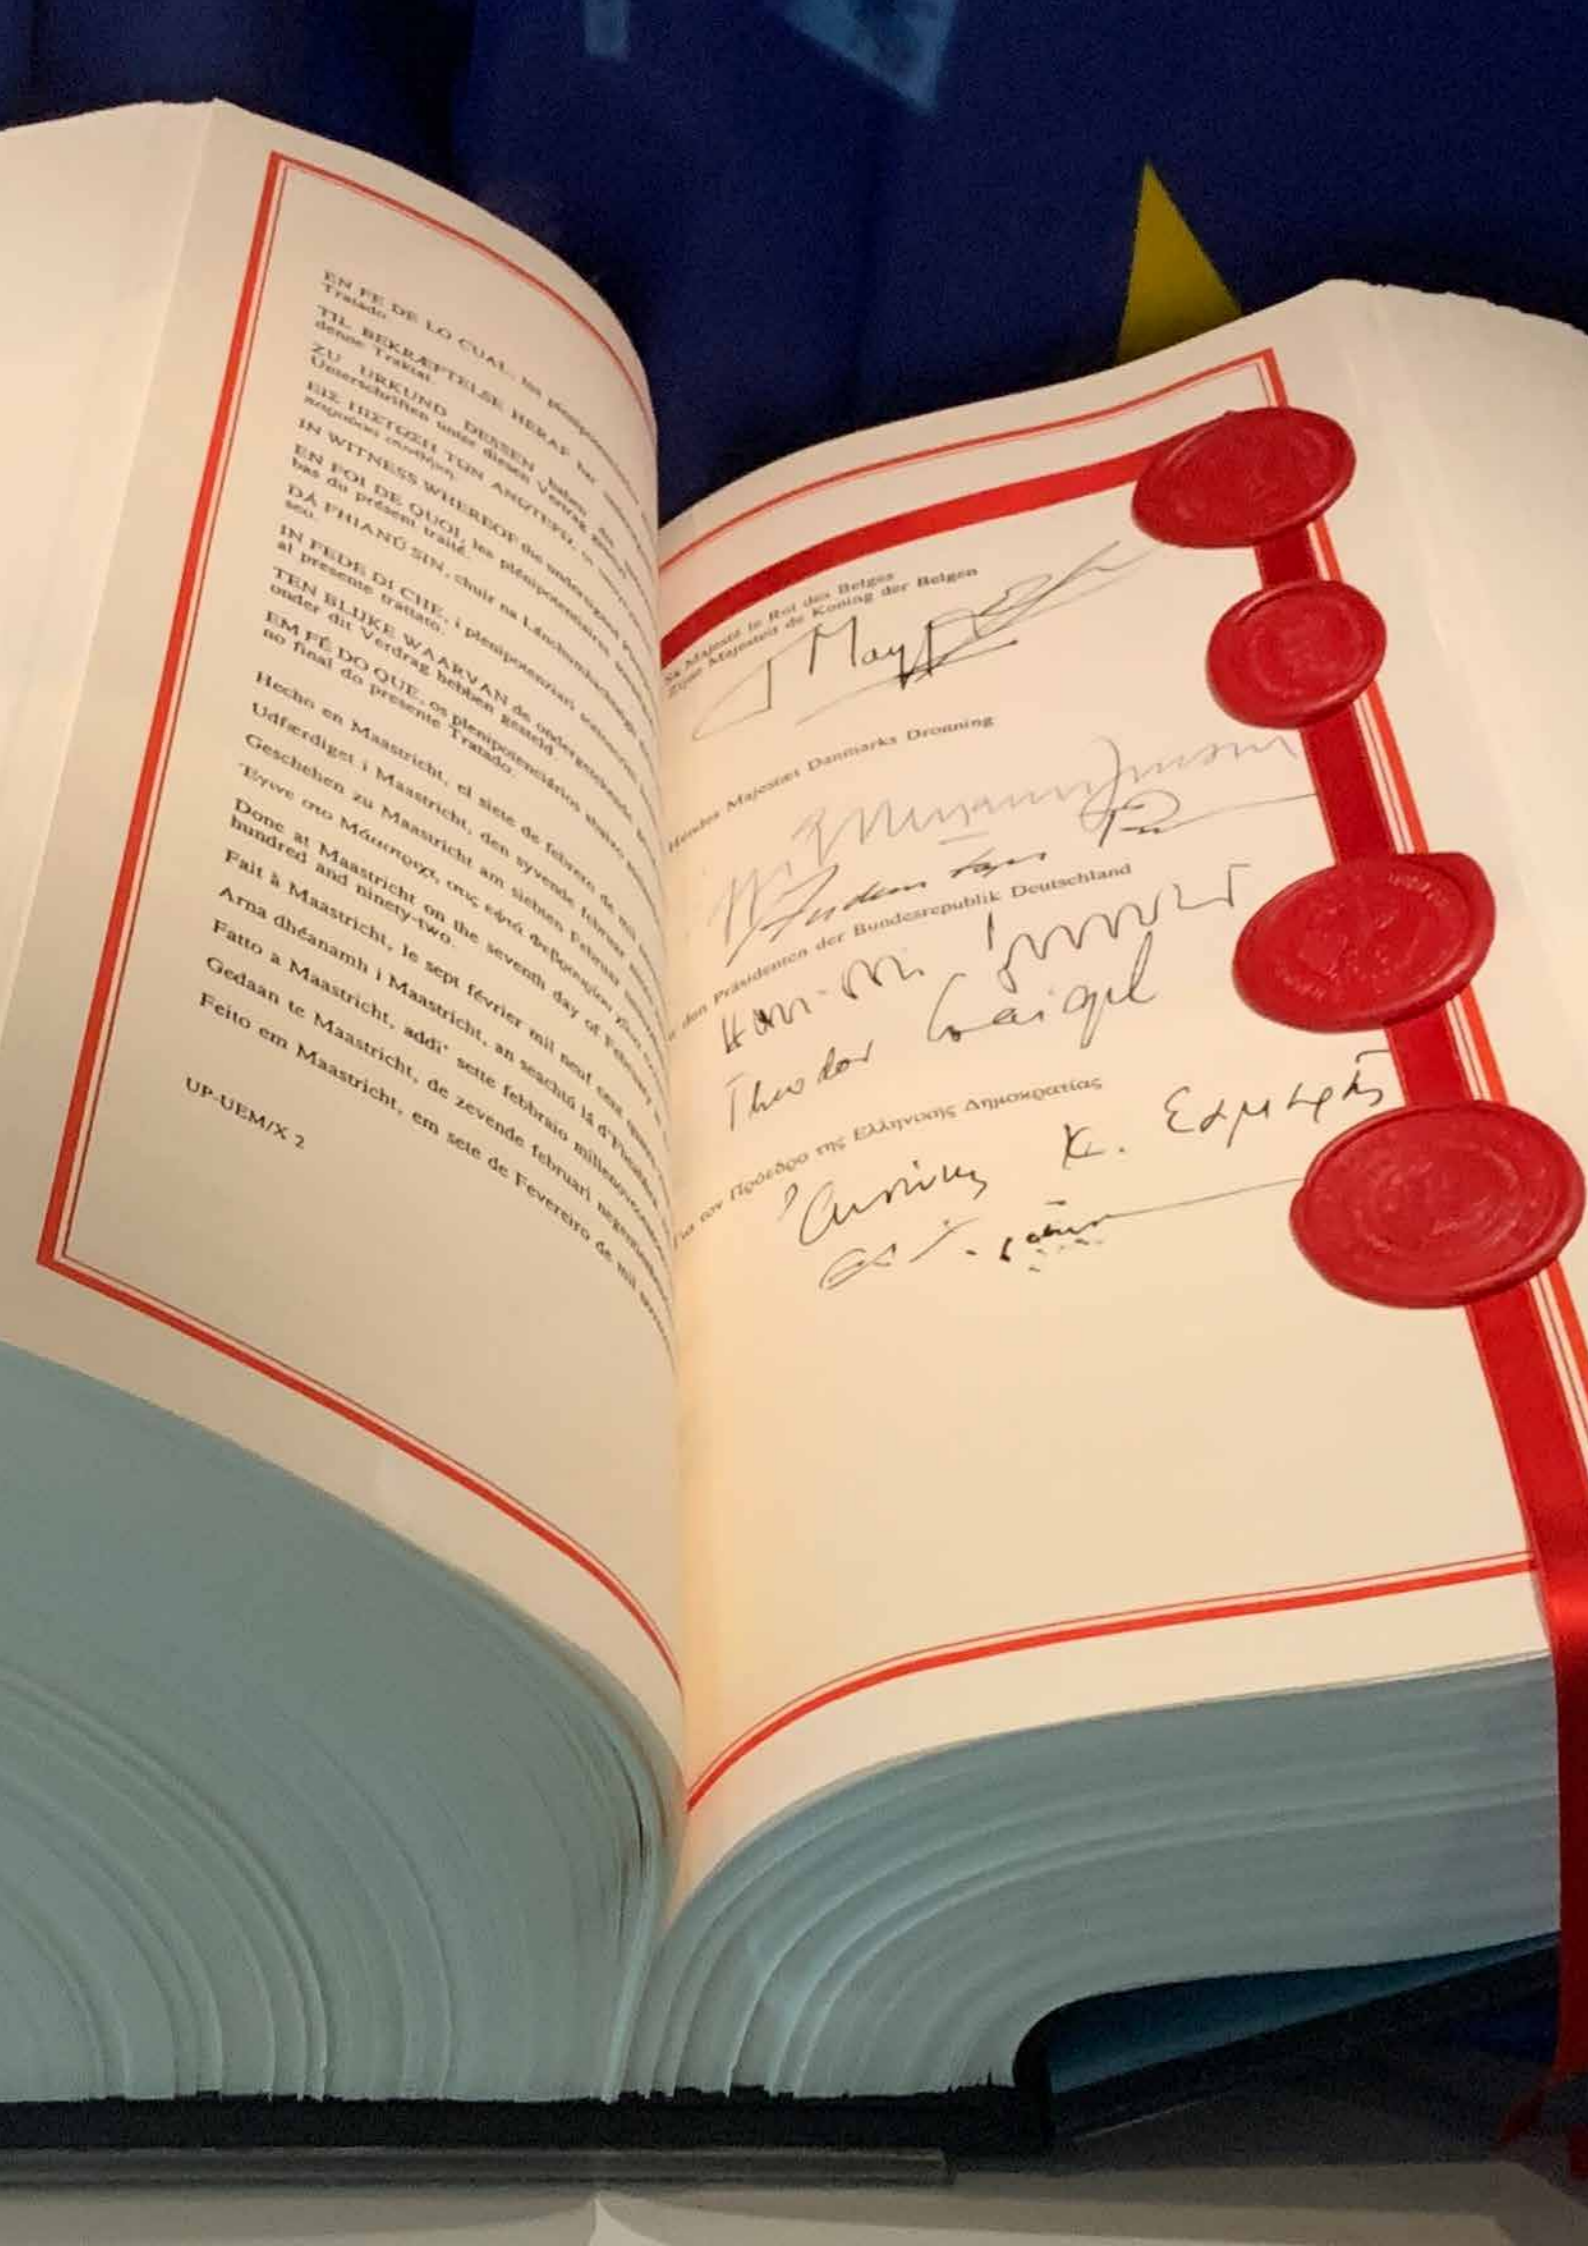 EN FE DE LO CUAL, los plenipotenciarios
Tratado
TIL BEKRÆFTELSE HERAF har
denne Traktat.
ZU URKUND DESSEN haben die
Unterschriften unter diesen Vertrag gesetzt
ΕΙΣ ΠΙΣΤΩΣΗ ΤΩΝ ΑΝΩΤΕΡΩ, οι
παρούσα συνθήκη.
IN WITNESS WHEREOF the undersigned
EN FOI DE QUOI, les plénipotentiaires
bas du présent traité.
DÁ FHIANÚ SIN, chuir na Lánchumhachtaigh
seo.
IN FEDE DI CHE, i plenipotenziari
al presente trattato.
TEN BLIJKE WAARVAN de ondergetekende
onder dit Verdrag hebben gesteld.
EM FÉ DO QUE, os plenipotenciários abaixo
no final do presente Tratado.
Hecho en Maastricht, el siete de febrero de mil
Udfærdiget i Maastricht, den syvende februar
Geschehen zu Maastricht am siebten Februar
Έγινε στο Μάαστριχτ, στις εφτά Φεβρουαρίου χίλια
Done at Maastricht on the seventh day of February
hundred and ninety-two.
Fait à Maastricht, le sept février mil neuf cent
Arna dhéanamh i Maastricht, an seachtú lá d'Fheabhra
Fatto a Maastricht, addi' sette febbraio
Gedaan te Maastricht, de zevende februari
Feito em Maastricht, em sete de Fevereiro de mil
UP-UEM/X 2
Sa Majesté le Roi des Belges
Zijne Majesteit de Koning der Belgen
Hendes Majestæt Danmarks Dronning
den Präsidenten der Bundesrepublik Deutschland
Theodor Waigel
Για τον Πρόεδρο της Ελληνικής Δημοκρατίας